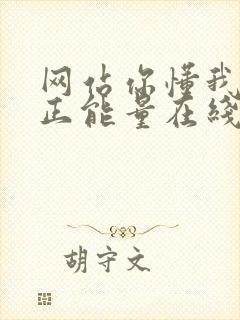 网佔你懂我
正能量在线
胡守文